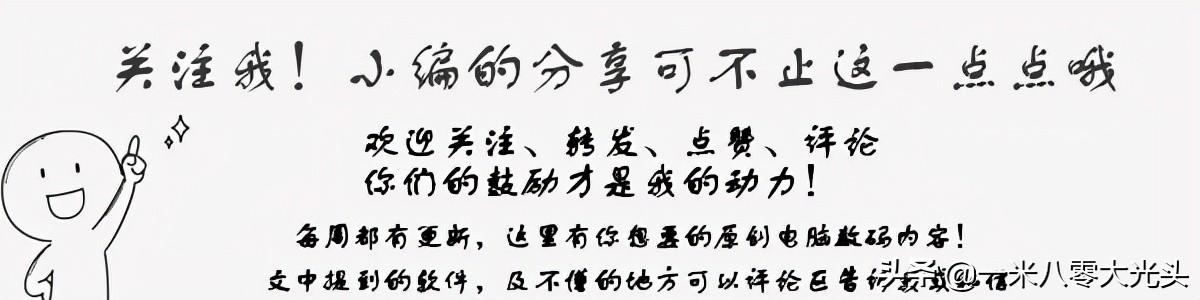 关注我！小编的分享可不止这一点点哦
欢迎关注、转发、点赞、评论
你们的鼓励才是我的动力！
每周都有更新，这里有你想要的原创电脑数码内容！
文中提到的软件，及不懂的地方可以评论区告诉
头条@一米八零大光头